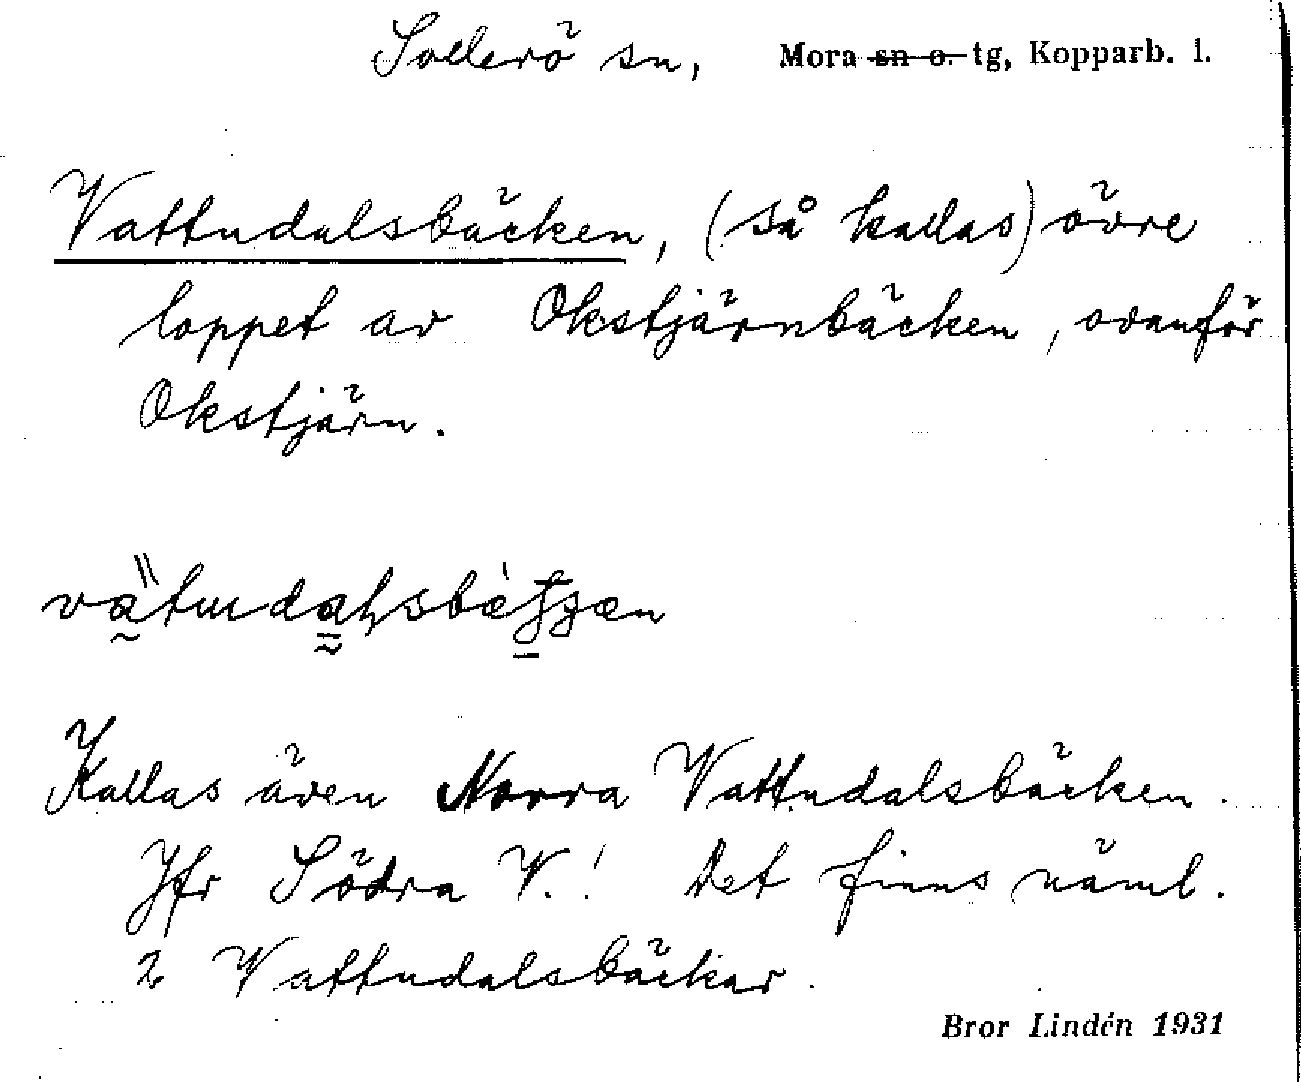 Sollerö sn, Mora sn o. tg, Kopparb. l.
Vattudalsbäcken, (så kallas) övre
loppet av Okstjärnbäcken, ovanför
Okstjärn.
Kallas även Norra Vattudalsbäcken.
Jfr Södra V.! Det finns näml.
2 Vattudalsbäckar.
Bror Lindén 1931